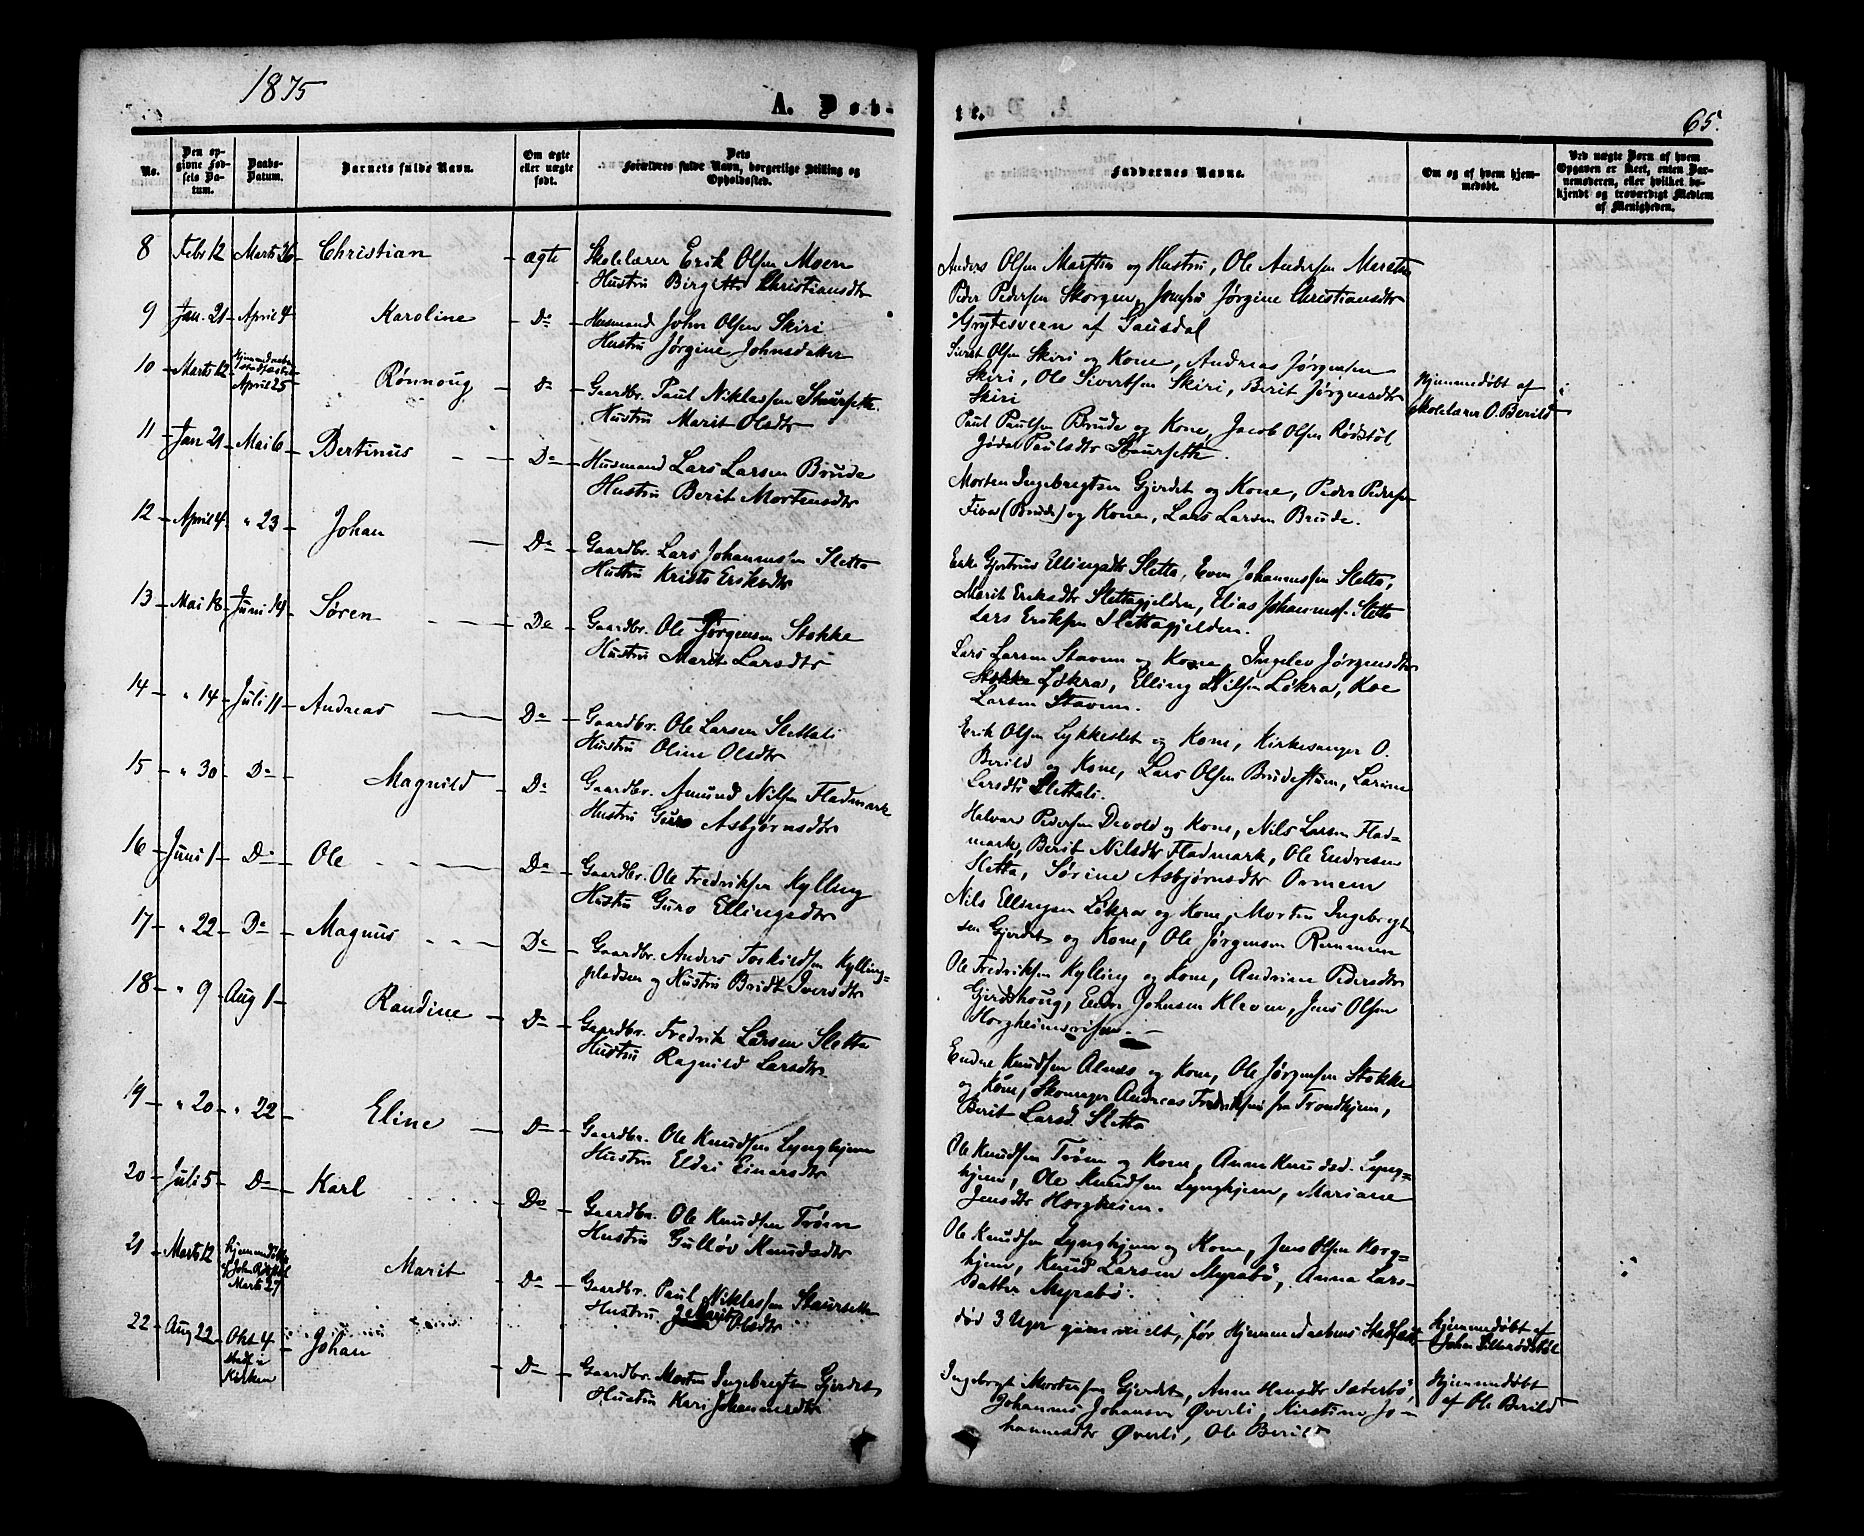 1875
A. Døb-
te.
65.
No.
Den op-
givne Fød-
sels Da-
tum.
Daabs-
Datum.
Barnets fulde Navn.
Om ægte
eller uægte
født.
Dets
Forældres fulde Navn, borgerlige Stilling og
Opholdssted.
Faddernes Navne.
Om og af hvem hjem-
medøbt.
Ved uægte Børn af hvem
Opgaven er skeet, enten Bar-
nemoderen, eller hvilket be-
kjendt og troværdigt Medlem
af Menigheden.
8 Febr 12 Marts 26 Christian ægte Skolelærer Erik Olsen Moen
Hustru Birgitte Christiansdtr
Anders Olsen Marstein og Hustru, Ole Andersen Marstein
Peder Pedersen Skorgen, Jomfru Jørgine Christiansdtr
Grytesveen af Gausdal
9 Jan. 21 April 4 Karoline Do Husmand John Olsen Skiri
Hustru Jørgine Johnsdatter
Sivert Olsen Skiri og Kone, Andreas Jørgensen
Skiri, Ole Sivertsen Skiri, Berit Jørgensdtr
Skiri
10 Marts 12 April 25 Rønnoug Do Gaardbr. Paul Niklassen Staursette
Hustru Marit Olsdtr
Paul Paulsen Brude og Kone, Jacob Olsen Rødstøl
Paulsdtr Staursette.
Hjemmedøbt af
Skolelærer O. Berild
11 Jan 21 Mai 6 Bertinus Do Husmand Lars Larsen Brude
Hustru Berit Mortensdtr
Morten Ingebregtsen Gjerdet og Kone, Peder Pedersen
Fiva (Brude) og Kone, Lars Larsen Brude.
12 April 4 " 23 Johan Do Gaardbr. Lars Johannessen Sletta
Hustru Kristi Eriksdtr
Enke Gjertrus Ellingsdtr Sletta, Even Johannessen Sletta,
Marit Eriksdtr Slettagjelden, Elias Johannesf. Sletta
Lars Eriksen Slettagjelden.
13 Mai 18 Juni 14 Søren Do Gaardbr. Ole Jørgensen Stokke
Hustru Marit Larsdtr
Lars Larsen Staven og Kone, Ingelev Jørgensdtr
Løkra, Elling Nilsen Løkra, Kæ
Larsen Staven.
14 " 14 Juli 11 Andreas Do Gaardbr. Ole Larsen Slettali
Hustru Oline Olsdtr
Erik Olsen Lykkeslet og Kone, Kirkesanger O.
Berild og Kone, Lars Olsen Brudestuen, Larine
Larsdtr Slettali.
15 " 30 Do Magnild Do Gaardbr. Amund Nilsen Fladmark
Hustru Guro Asbjørnsdtr
Halvard Pedersen Devold og Kone, Nils Larsen Flad-
mark, Berit Nilsdtr Fladmark, Ole Endresen
Sletta, Sørine Asbjørnsdtr Ormem
16 Juni 1 Do Ole Do Gaardbr. Ole Fredriksen Kylling
Hustru Guro Ellingsdtr
Nils Ellingsen Løkra og Kone, Morten Ingebregt-
sen Gjerdet og Kone, Ole Jørgensen Remmem
17 " 22 Do Magnus Do Gaardbr. Anders Torkildsen Kylling-
pladsen og Hustru Bridt Iversdtr
Ole Fredriksen Kylling og Kone, Andriane Pedersdtr
Gjerdshoug, Endre Johnsen Kleven, Jens Olsen
Horgheimsvisen.
18 " 9 Aug 1 Randine Do Gaardbr. Fredrik Larsen Sletta
Hustru Ragnild Larsdtr
Endre Knudsen Alnæs og Kone, Ole Jørgensen Stokke
og Kone, Skomager Andreas Fredriksen fra Trondhjem,
Berit Larsd. Sletta
19 " 20 " 22 Eline Do Gaardbr. Ole Knudsen Lynghjem
Hustru Eldri Einarsdtr
Ole Knudsen Trøen og Kone, Anne Knudsd. Lyng-
hjem, Ole Knudsen Lynghjem, Mariane
Jensdtr Horgheim.
20 Juli 5 Do Karl Do Gaardbr. Ole Knudsen Trøen
Hustru Gulløv Knudsdtr
Ole Knudsen Lynghjem og Kone, Jens Olsen Horg-
hjem, Knud Larsen Myrabø, Anna Lars-
datter Myrabø.
21 Marts 12 Hjemmedøbt
Marts 27 Marit Do Gaardbr. Paul Niklassen Staursette
Hustru Marit Olsdtr
død 3 Uger gammelt, før Hjemmedaabens Stadfæst
Hjemmedøbt af
22 Aug 22 Okt 4
Stadf. i
Kirken
Johan Do Gaardbr. Morten Ingebregtsen Gjerdet
Hustru Kari Johannesdtr
Ingebregt Mortensen Gjerdet, Anne Hansdtr Sæterbø,
Johannes Johansen Øverli, Kirstine Jo-
hannesdtr Øverli, Ole Berild
Hjemmedøbt
af Ole Berild